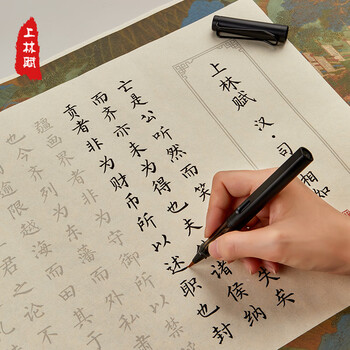 上林赋
上林赋 汉·司 相如
亡是公听然而笑 失矣
而齐亦未为得也夫 诸侯纳
贡者非为财币所以述职也封
疆画界者非为守御所以禁
也今齐列为东藩而外私肃
限越海而田其于
君之论不